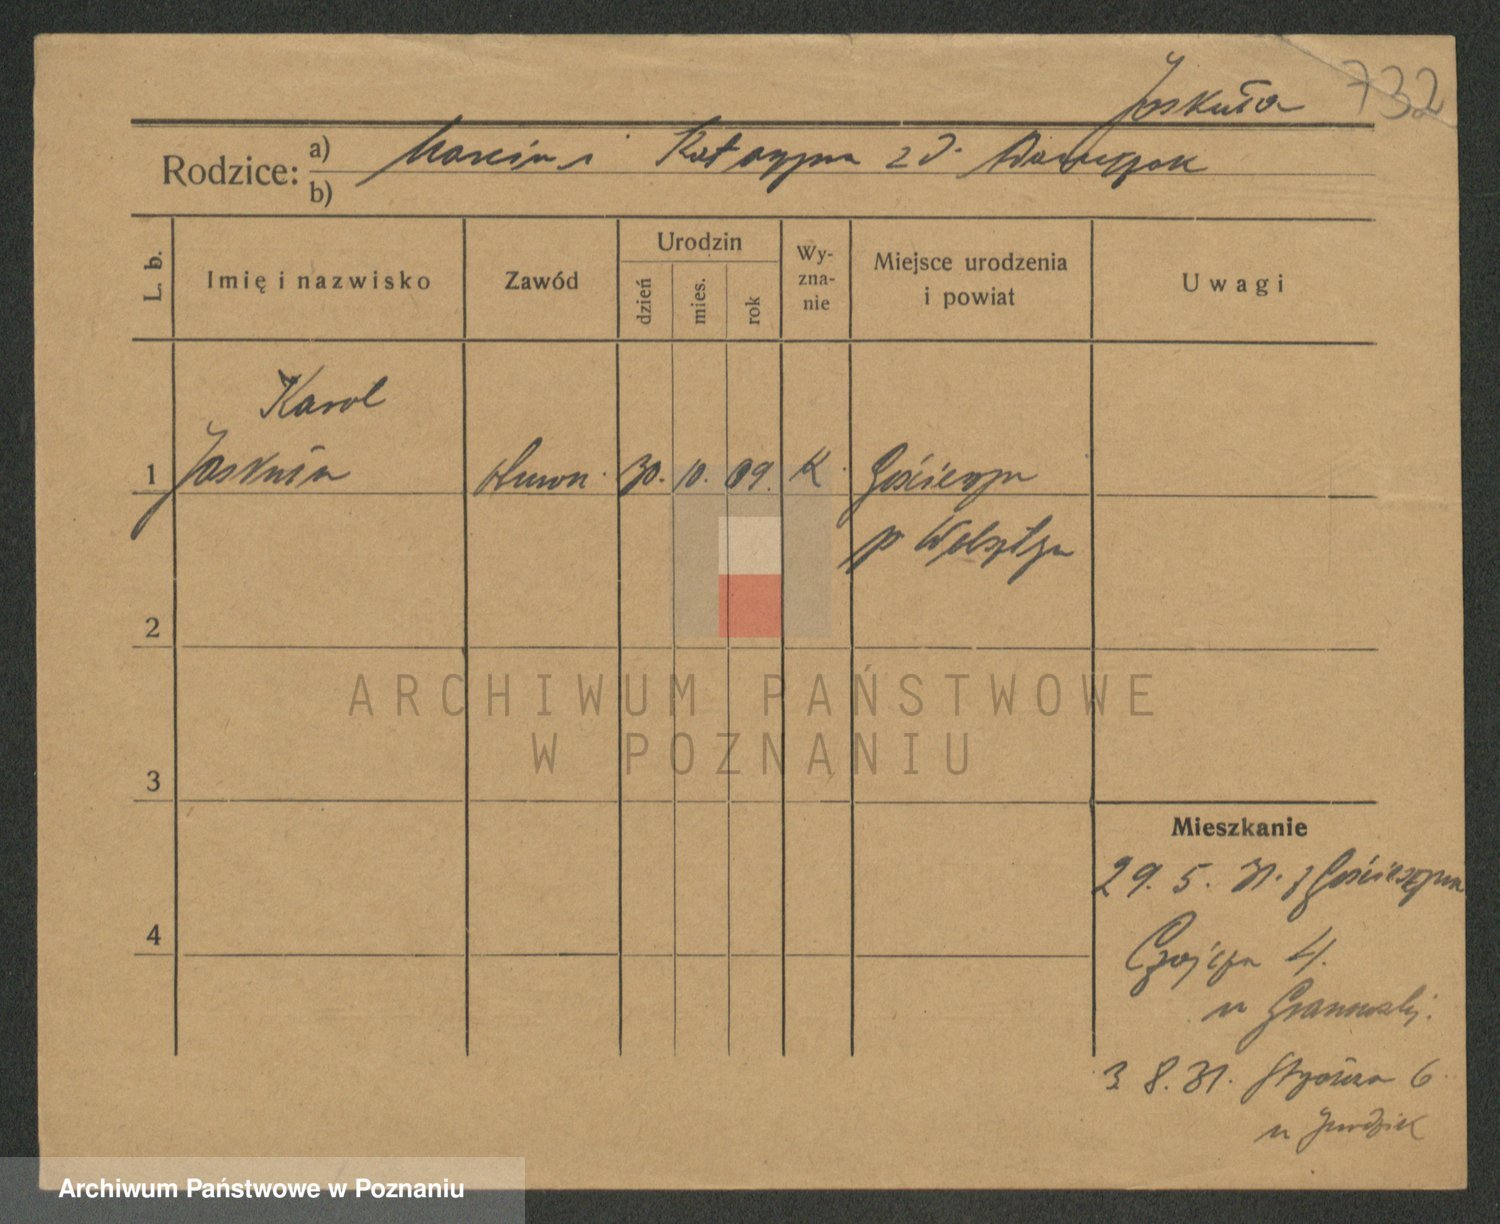 732
Jaskuła
Rodzice: a) Marcin i Katarzyna zd.
b)
L. b.
Imię i nazwisko
Zawód
Urodzin
dzień
mies.
rok
Wy-
zna-
nie
Miejsce urodzenia
i powiat
Uwagi
Karol
1 Jaskuła 30. 10. 09. K.
p Wolsztyn
2
3
4
Mieszkanie
29. 5. 31. z
Czajcza 4.
u
3 8. 31. 6
u
ARCHIWUM PAŃSTWOWE
W POZNANIU
Archiwum Państwowe w Poznaniu